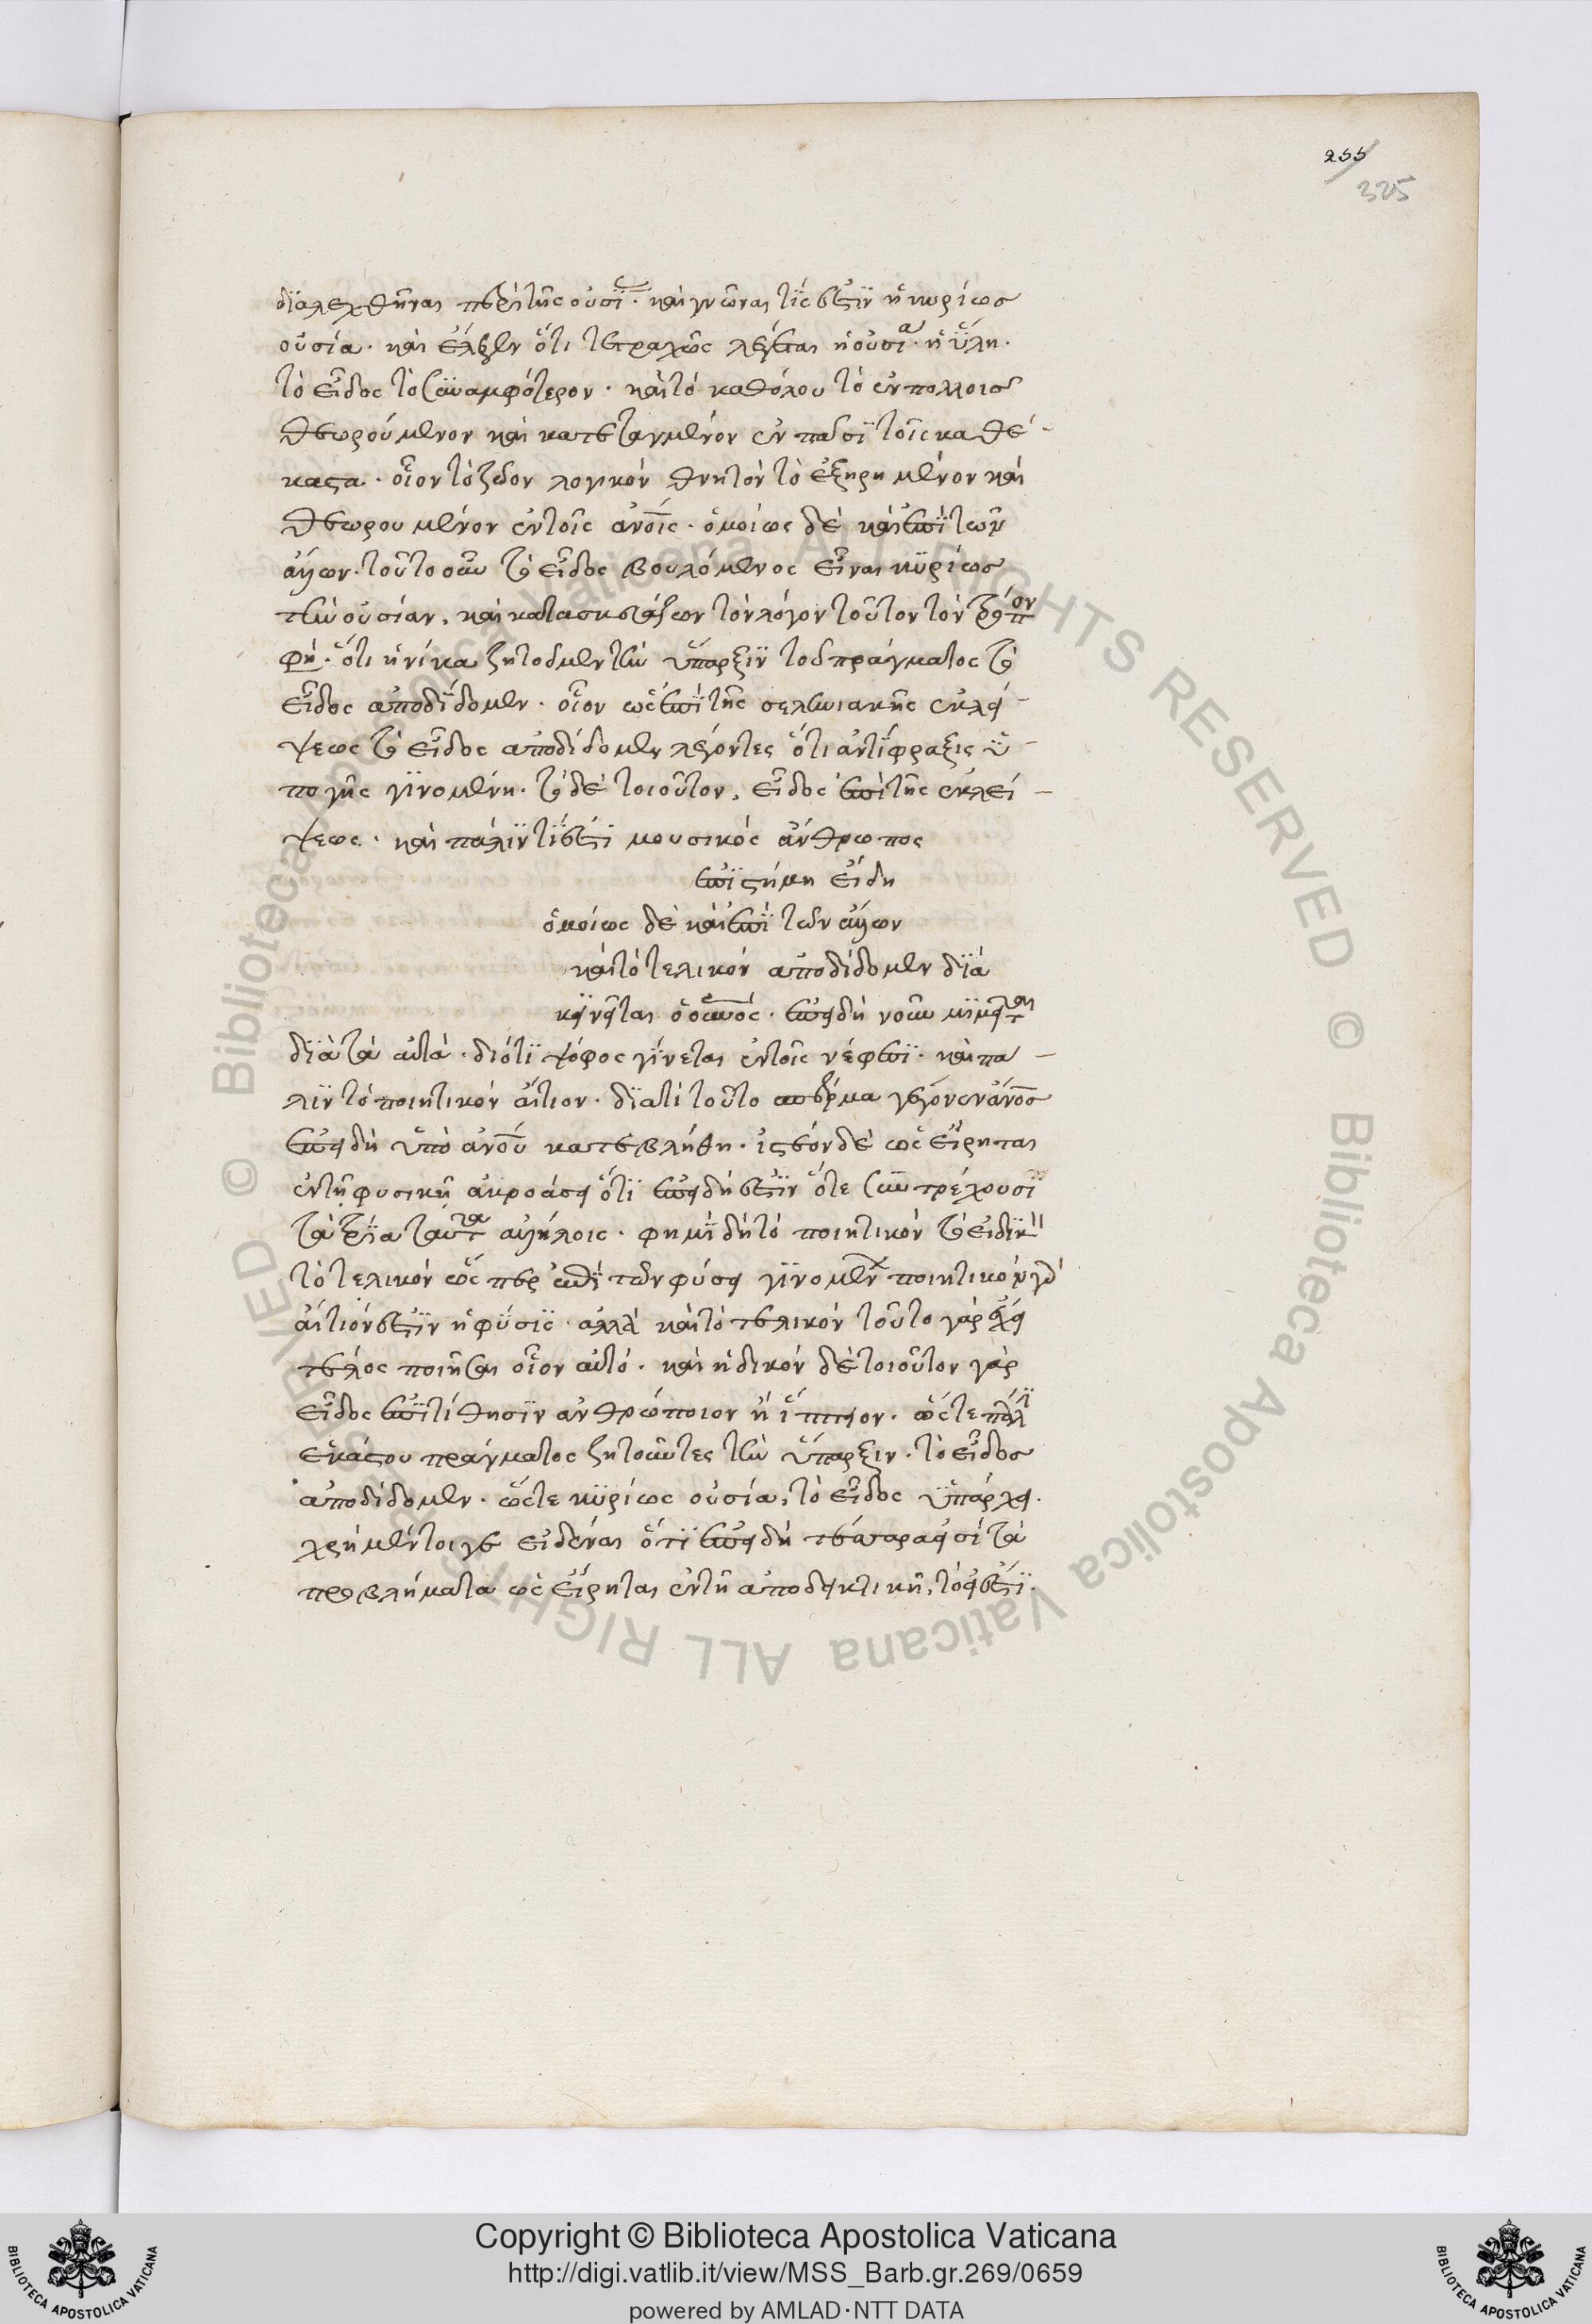 255
325
διαλεχθῆναι περὶ τῆς οὐσί · καὶ γνῶναι τίς ἐστιν ἡ κυρίως
οὐσία · καὶ ἔλεγεν ὅτι τετραχῶς λέγεται ἡ οὐσία · ἡ ὕλη ·
τὸ εἶδος τὸ συναμφότερον · καὶ τὸ καθόλου τὸ ἐν πολλοῖς
θεωρούμενον καὶ κατεταγμένον ἐν πᾶσι τοῖς καθέ-
καστα · οἷον τὸ ζῶον λογικὸν θνητὸν τὸ ἐξῃρημένον καὶ
θεωρουμένον ἐν τοῖς ἀνοις · ὁμοίως δὲ καὶ ἐπὶ τῶν
ἄλλων · τοῦτο οὖν τὸ εἶδος βουλόμενος εἶναι κυρίως
τὴν οὐσίαν, καὶ κατασκευάζων τὸν λόγον τοῦτον τὸν τρόπον
φη · ὅτι ἡνίκα ζητοῦμεν τὴν ὕπαρξιν τοῦ πράγματος τὸ
εἶδος ἀποδίδομεν · οἷον ὡς ἐπὶ τῆς σεληνιακῆς ἐκλεί-
ψεως τὸ εἶδος ἀποδίδομεν λέγοντες ὅτι ἀντίφραξις ὑ-
πο γῆς γινομένη · τὸ δὲ τοιοῦτον, εἶδος ἐπὶ τῆς ἐκλεί-
ψεως · καὶ πάλιν τί ἐστι μουσικὸς ἄνθρωπος
ἐπιστήμη εἴδη
ὁμοίως δὲ καὶ ἐπὶ τῶν ἄλλων
καὶ τὸ τελικὸν ἀποδίδομεν διὰ
κινεῖται ὁ οὐνός · ἐπειδὴ νοῦν μιμεῖται
διὰ τὰ αὐτὰ · διότι ψόφος γίνεται ἐν τοῖς νέφεσι · καὶ πα-
λιν τὸ ποιητικὸν αἴτιον · διατί τοῦτο σπέρμα γέγονεν ἄνος
ἐπειδὴ ὑπὸ ἀνου κατεβλήθη · ἰστέον δὲ ὡς εἴρηται
ἐν τῇ φυσικῇ ἀκροάσει ὅτι ἐπειδή ἐστιν ὅτε συντρέχουσι
τὰ τρία ταῦτα ἀλλήλοις · φημὶ δὴ τὸ ποιητικὸν τὸ εἰδικ
τὸ τελικὸν ὥς περ ἐπὶ τῶν φύσει γινομένων ποιητικὸν γὰρ
αἴτιόν ἐστιν ἡ φύσις · ἀλλὰ καὶ τὸ τελικὸν τοῦτο γὰρ ἔχει
τέλος ποιῆσαι οἷον αὐτό · καὶ ἠδικὸν δὲ τοιοῦτον γὰρ
εἶδος ἐπιτίθησιν ἀνθρώποιον ἢ ἵππειον · ὥστε πάλι
ἑκάστου πράγματος ζητοῦντες τὴν ὕπαρξιν · τὸ εἶδος
ἀποδίδομεν · ὥστε κυρίως οὐσία, τὸ εἶδος ὑπάρχει ·
χρὴ μέντοιγε εἰδέναι ὅτι ἐπειδὴ τέσσαρα εἰσὶ τὰ
προβλήματα ὡς εἴρηται ἐν τῇ ἀποδεικτικῇ, τὸ εἰ ἔστι ·
© Biblioteca Apostolica Vaticana ALL RIGHTS RESERVED
© Biblioteca Apostolica Vaticana ALL RIGHTS RESERVED
Copyright © Biblioteca Apostolica Vaticana
http://digi.vatlib.it/view/MSS_Barb.gr.269/0659
powered by AMLAD·NTT DATA
BIBLIOTECA APOSTOLICA VATICANA
BIBLIOTECA APOSTOLICA VATICANA